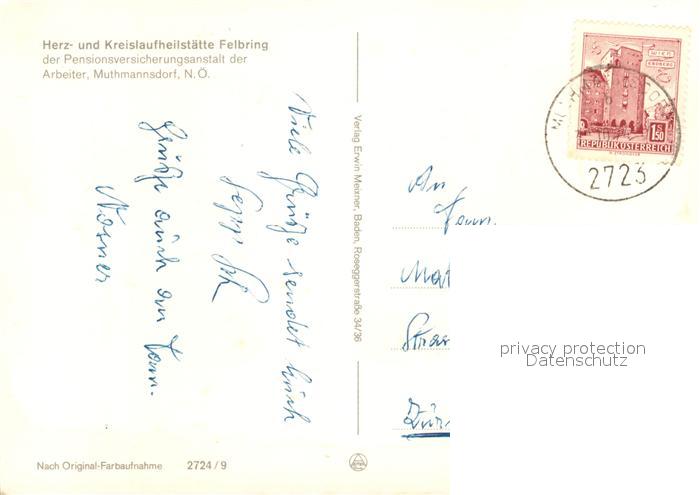 Herz- und Kreislaufheilstätte Felbring
der Pensionsversicherungsanstalt der
Arbeiter, Muthmannsdorf, N.Ö.
Viele Grüße sendet Euch
Sepp
Grüße auch an Fam.
Verlag Erwin Meixner, Baden, Roseggerstraße 34/36
WIEN
ERDBERG
1.50
REPUBLIK ÖSTERREICH
2723
An
Fam.
privacy protection
Datenschutz
Nach Original-Farbaufnahme 2724/9